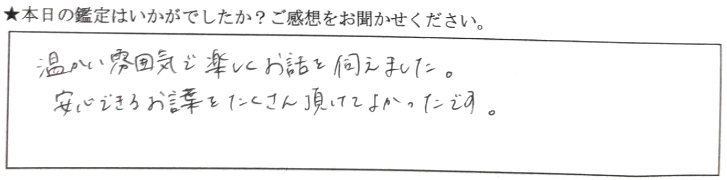 ★本日の鑑定はいかがでしたか？ご感想をお聞かせください。
温かい雰囲気で楽しくお話を伺えました。
安心できるお言葉をたくさん頂けてよかったです。